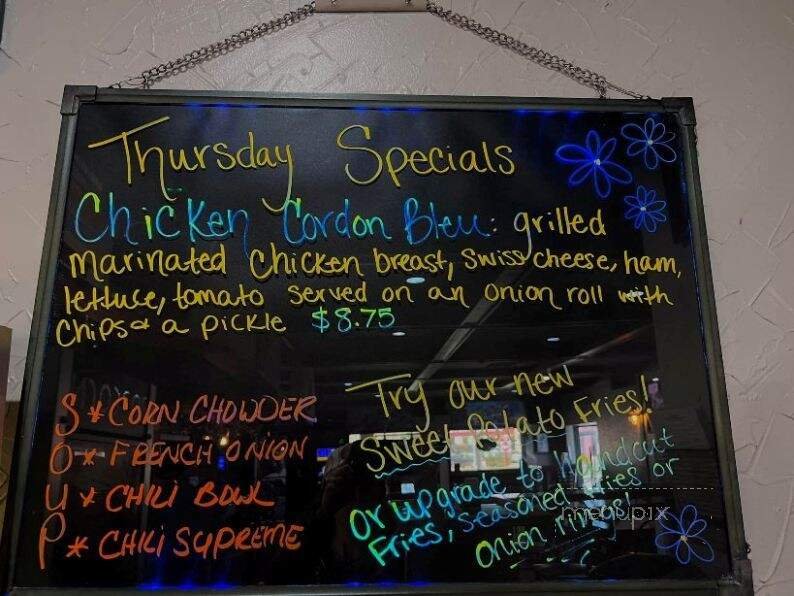 Thursday Specials
Chicken Cordon Bleu: grilled
marinated chicken breast, swiss cheese, ham,
lettuce, tomato served on an onion roll with
chips & a pickle $8.75
S * CORN CHOWDER
O * FRENCH ONION
U * CHILI BOWL
P * CHILI SUPREME
Try our new
Sweet Potato Fries!
Or upgrade to handcut
Fries, seasoned fries or
onion rings!
menupix